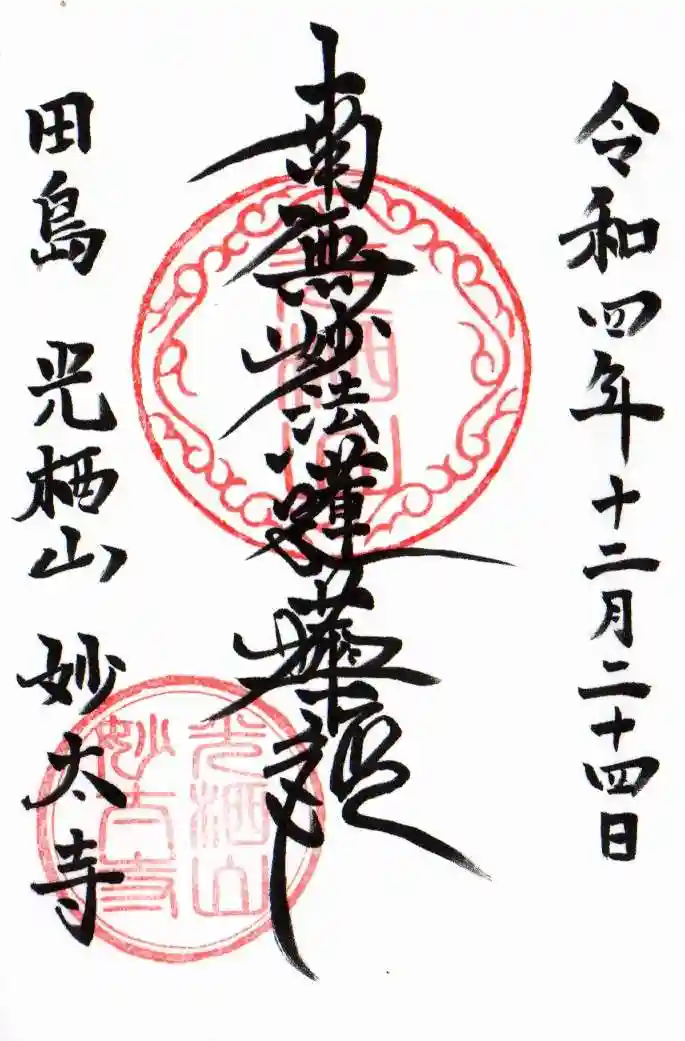 令和四年十二月二十四日
南無妙法蓮華経
田島 光栖山 妙太寺
光栖山
光栖山
妙太寺